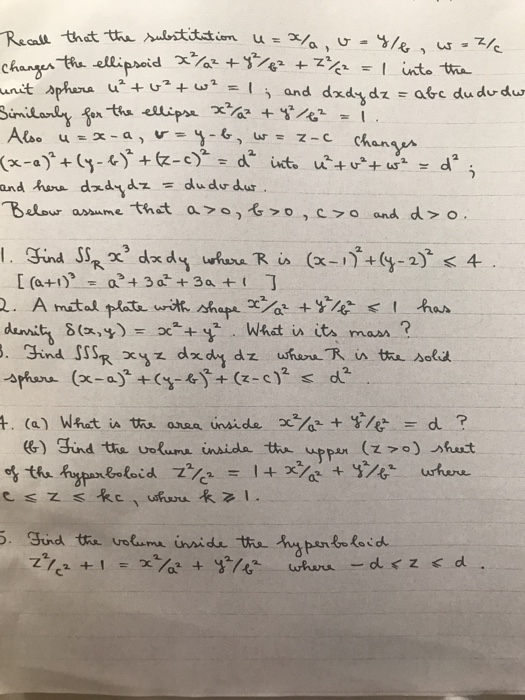 Recall that the substitution u = x/a, v = y/b, w = z/c
changes the ellipsoid x²/a² + y²/b² + z²/c² = 1 into the
unit sphere u² + v² + w² = 1 ; and dxdydz = abc dudvdw
Similarly for the ellipse x²/a² + y²/b² = 1.
Also u = x-a, v = y-b, w = z-c changes
(x-a)² + (y-b)² + (z-c)² = d² into u² + v² + w² = d² ;
and here dxdydz = dudvdw.
Below assume that a>0, b>0, c>0 and d>0.
1. Find ∫∫_R x³ dxdy where R is (x-1)² + (y-2)² ≤ 4.
[(a+1)³ = a³ + 3a² + 3a + 1 ]
2. A metal plate with shape x²/a² + y²/b² ≤ 1 has
density δ(x,y) = x² + y². What is its mass ?
3. Find ∫∫∫_R xyz dxdydz where R is the solid
sphere (x-a)² + (y-b)² + (z-c)² ≤ d²
4. (a) What is the area inside x²/a² + y²/b² = d ?
(b) Find the volume inside the upper (z>0) sheet
of the hyperboloid z²/c² = 1 + x²/a² + y²/b² where
c ≤ z ≤ kc, where k ≥ 1.
5. Find the volume inside the hyperboloid
z²/c² + 1 = x²/a² + y²/b² where -d ≤ z ≤ d.